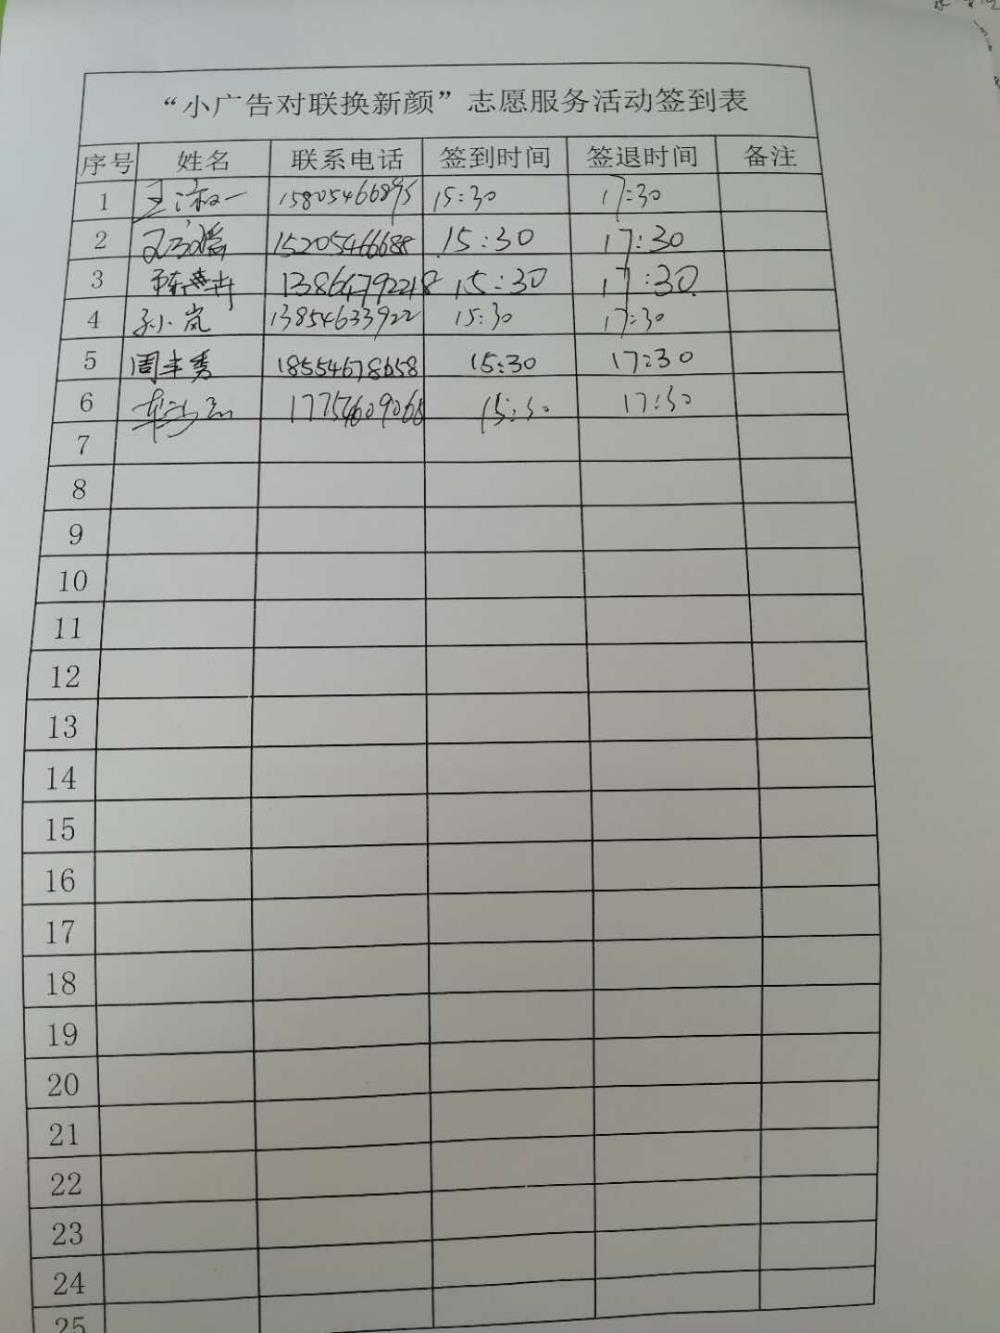 “小广告对联换新颜”志愿服务活动签到表
序号 姓名 联系电话 签到时间 签退时间 备注
1 王淑一 15805466895 15:30 17:30
2 15205466688 15:30 17:30
3 13864792218 15:30 17:30
4 孙岚 13854633922 15:30 17:30
5 周丰秀 18554678658 15:30 17:30
6 17754609068 15:30 17:30
7
8
9
10
11
12
13
14
15
16
17
18
19
20
21
22
23
24
25